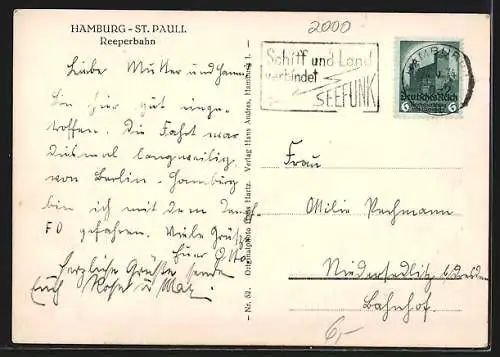 HAMBURG - ST. PAULI.
Reeperbahn
2000
Schiff und Land
verbindet
SEEFUNK
HAMBURG
Deutsches Reich
6 6
Liebe Mutter und
Bin hier gut einge-
troffen. Die Fahrt war
diesmal langweilig,
von Berlin - Hamburg
bin ich mit dem
gefahren. Viele Grüße
Euer Otto
Herzliche Grüße sendet
Euch
Nr. 52. Originalphoto Hans Hartz. Verlag Hans Andres, Hamburg 1.
Frau
Ottilie Pechmann
Niedersedlitz b/Dresden
Bahnhof.
6,-